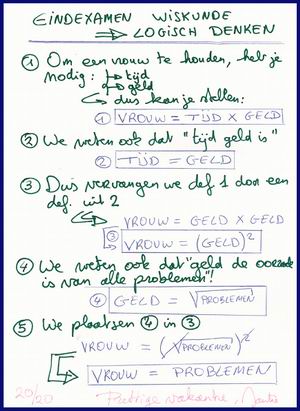 EINDEXAMEN WISKUNDE
⇒ LOGISCH DENKEN
① Om een vrouw te houden, heb je
nodig: → tijd
→ geld
↪ dus kan je stellen:
① VROUW = TIJD X GELD
② We weten ook dat "tijd geld is"
② TIJD = GELD
③ Dus vervangen we def 1 door een
def. uit 2
VROUW = GELD X GELD
③ VROUW = (GELD)²
④ We weten ook dat "geld de oorzaak
is van alle problemen"!
④ GELD = √PROBLEMEN
⑤ We plaatsen ④ in ③
VROUW = (√PROBLEMEN)²
VROUW = PROBLEMEN
20/20 Prettige vakantie,